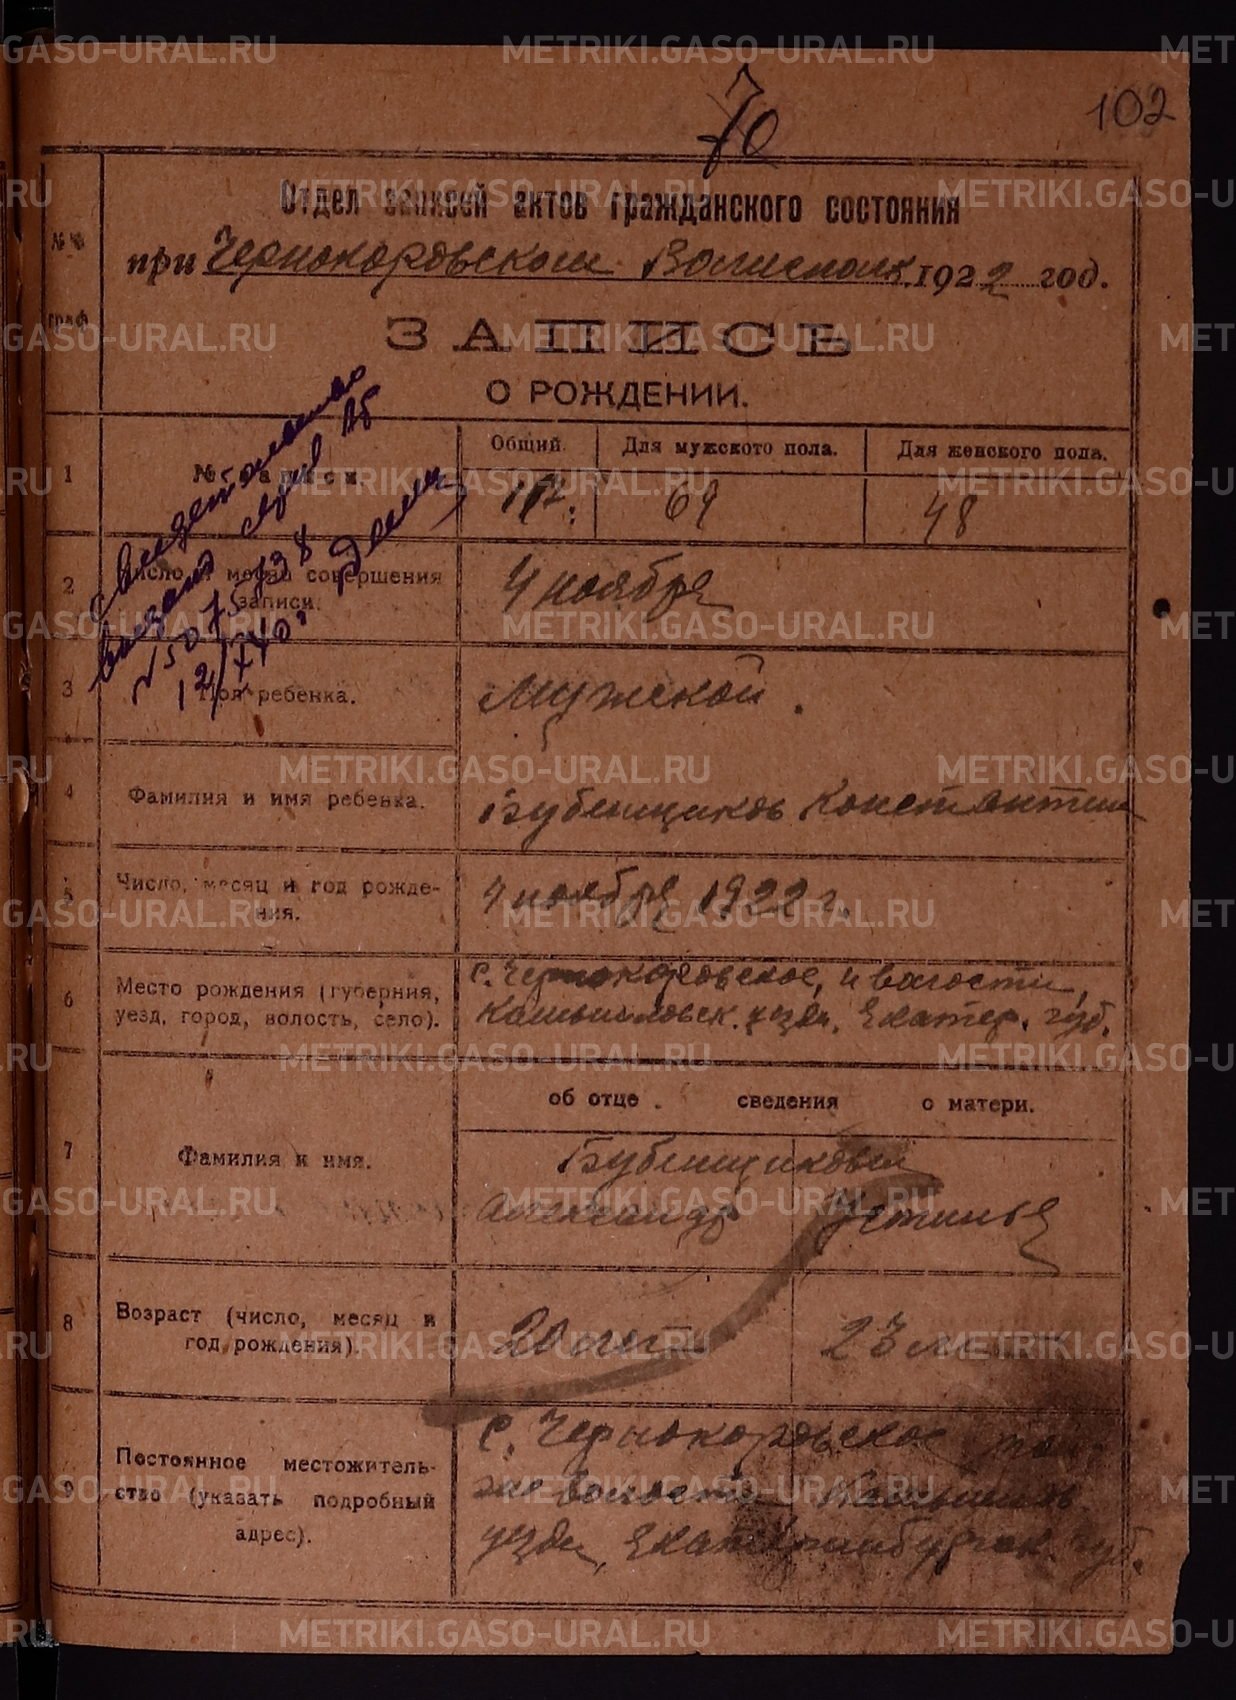 102
70
Отдел записей актов гражданского состояния
при Чернокоровском Волисполк. 1922 год.
№№ граф
ЗАПИСЬ
О РОЖДЕНИИ.
Свидетельство
выдано серия
1
№ записи
Общий.
Для мужского пола.
Для женского пола.
117.
69
48
2
Число и месяц совершения
записи.
4 ноября
3
Пол ребенка.
Мужской.
4
Фамилия и имя ребенка.
Бубенщиков Константин
5
Число, месяц и год рожде-
ния.
4 ноября 1922 г.
6
Место рождения (губерния,
уезд, город, волость, село).
с. Чернокоровское, и волости,
Камышловск. уезда, Екатер. губ.
об отце
сведения
о матери.
7
Фамилия и имя.
Бубенщиковы
Александр
Устинья
8
Возраст (число, месяц и
год рождения).
20 лет
23 лет
9
Постоянное местожитель-
ство (указать подробный
адрес).
с. Чернокоровское той
же волости Камышлов.
уезда, Екатеринбургск. губ.
METRIKI.GASO-URAL.RU